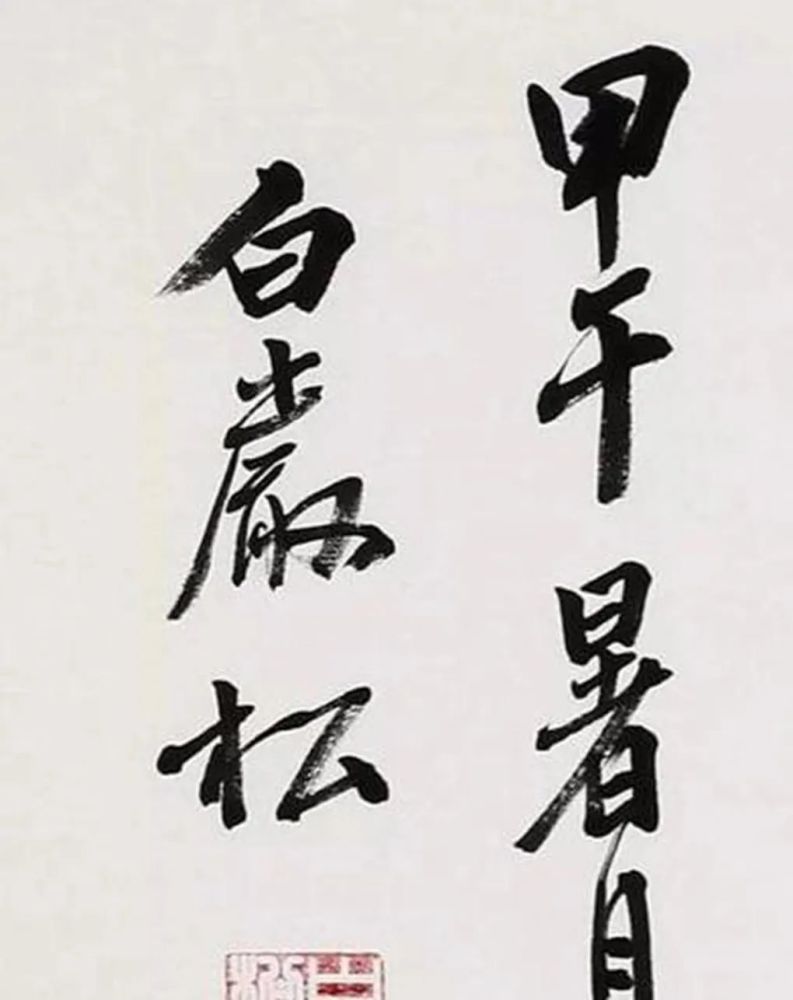 甲午暑月
白巖松